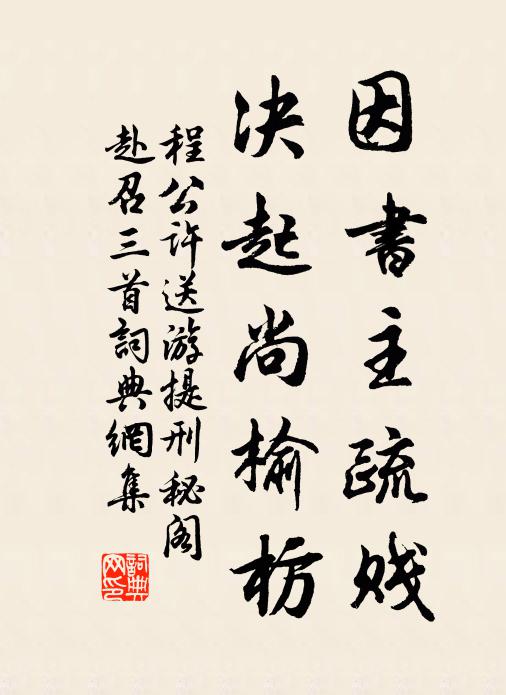 因書主疏賤
决起尚榆枋
程公許送游提刑秘閣
赴召三首詞典網集
詞典
网印